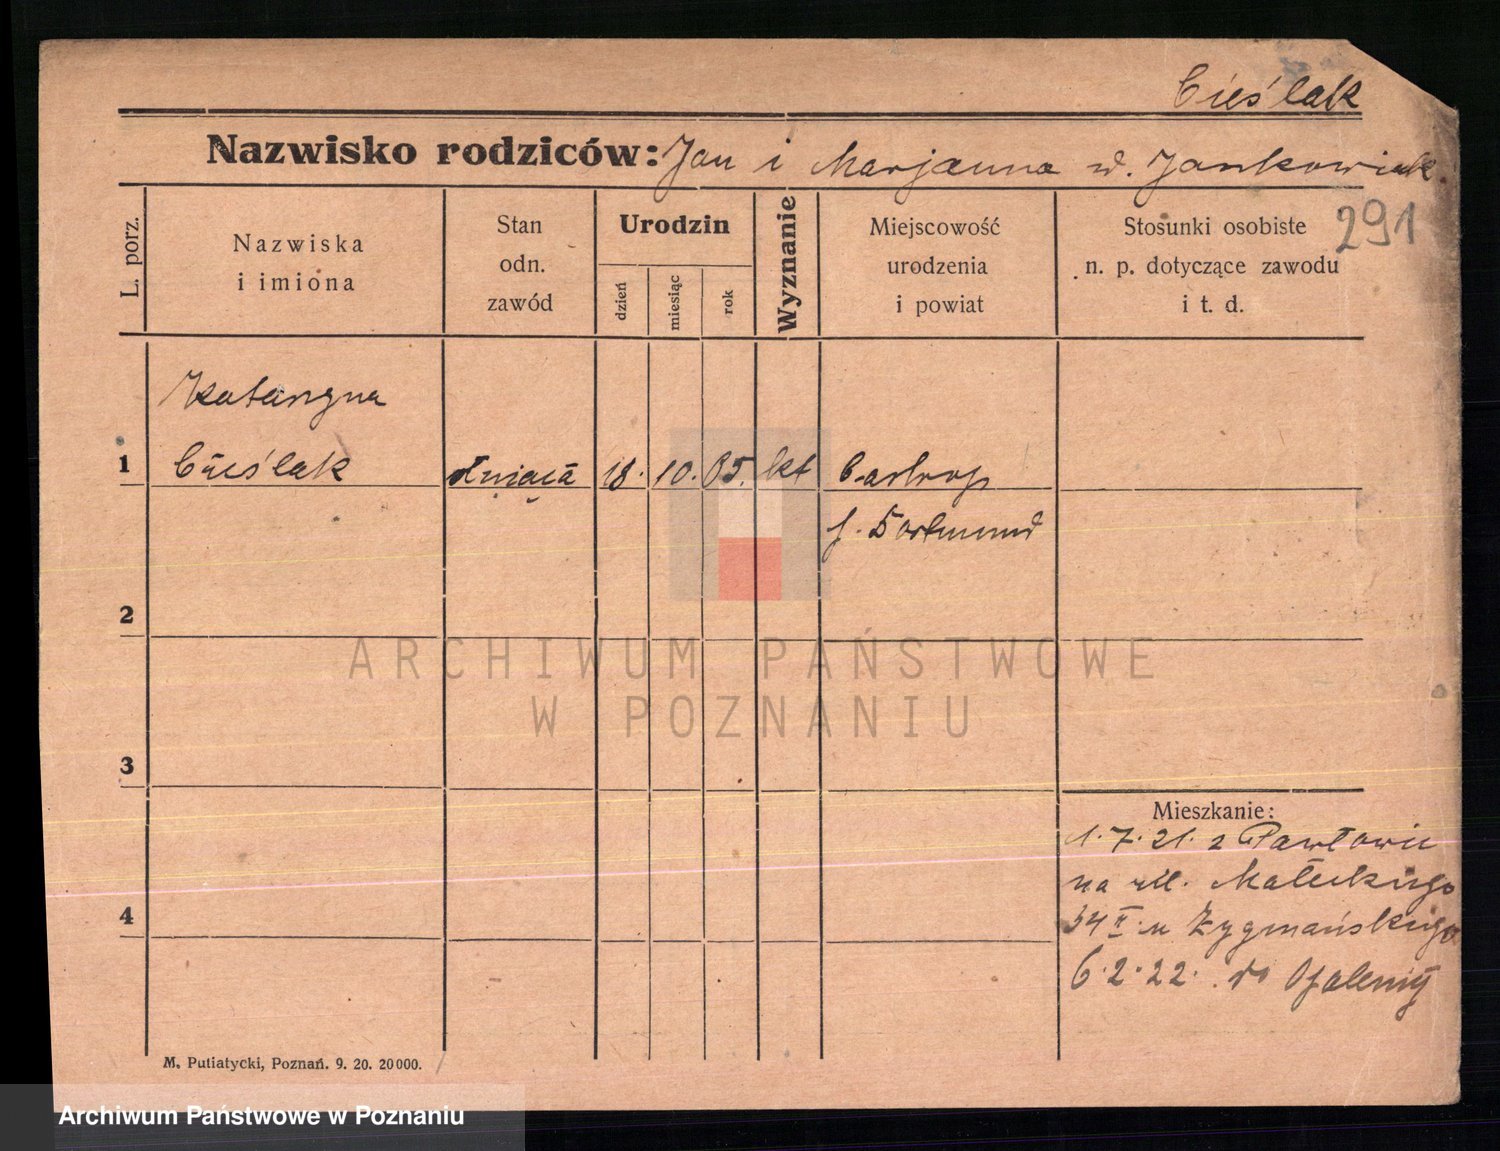 Cieślak
Nazwisko rodziców: Jan i Marjanna d. Jankowiak
291
L. porz.
Nazwiska
i imiona
Stan
odn.
zawód
Urodzin
dzień
miesiąc
rok
Wyznanie
Miejscowość
urodzenia
i powiat
Stosunki osobiste
n. p. dotyczące zawodu
i t. d.
Katarzyna
1 Cieślak służąca 18. 10. 05. kt Castrop
Dortmund
2
3
4
Mieszkanie:
1.7.21. z Pawłowic
na ul. Małeckiego
34 II u Zygmańskiego
6.2.22. do Opalenicy
M. Putiatycki, Poznań. 9. 20. 20000.
ARCHIWUM PAŃSTWOWE
W POZNANIU
Archiwum Państwowe w Poznaniu